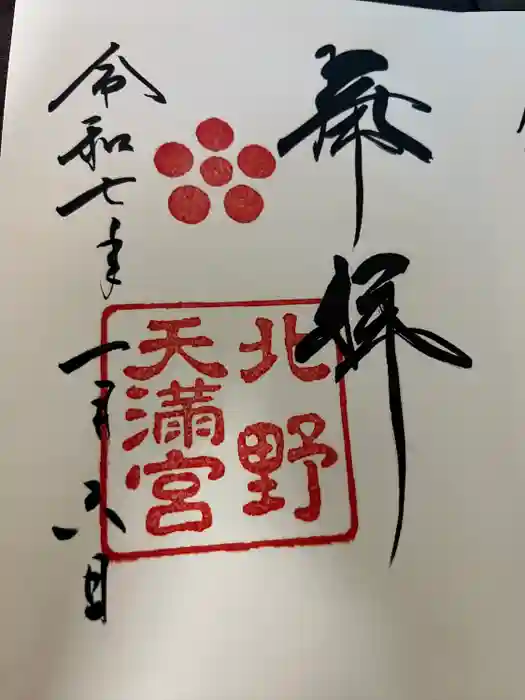 奉拝
北野
天満宮
令和七年一月八日